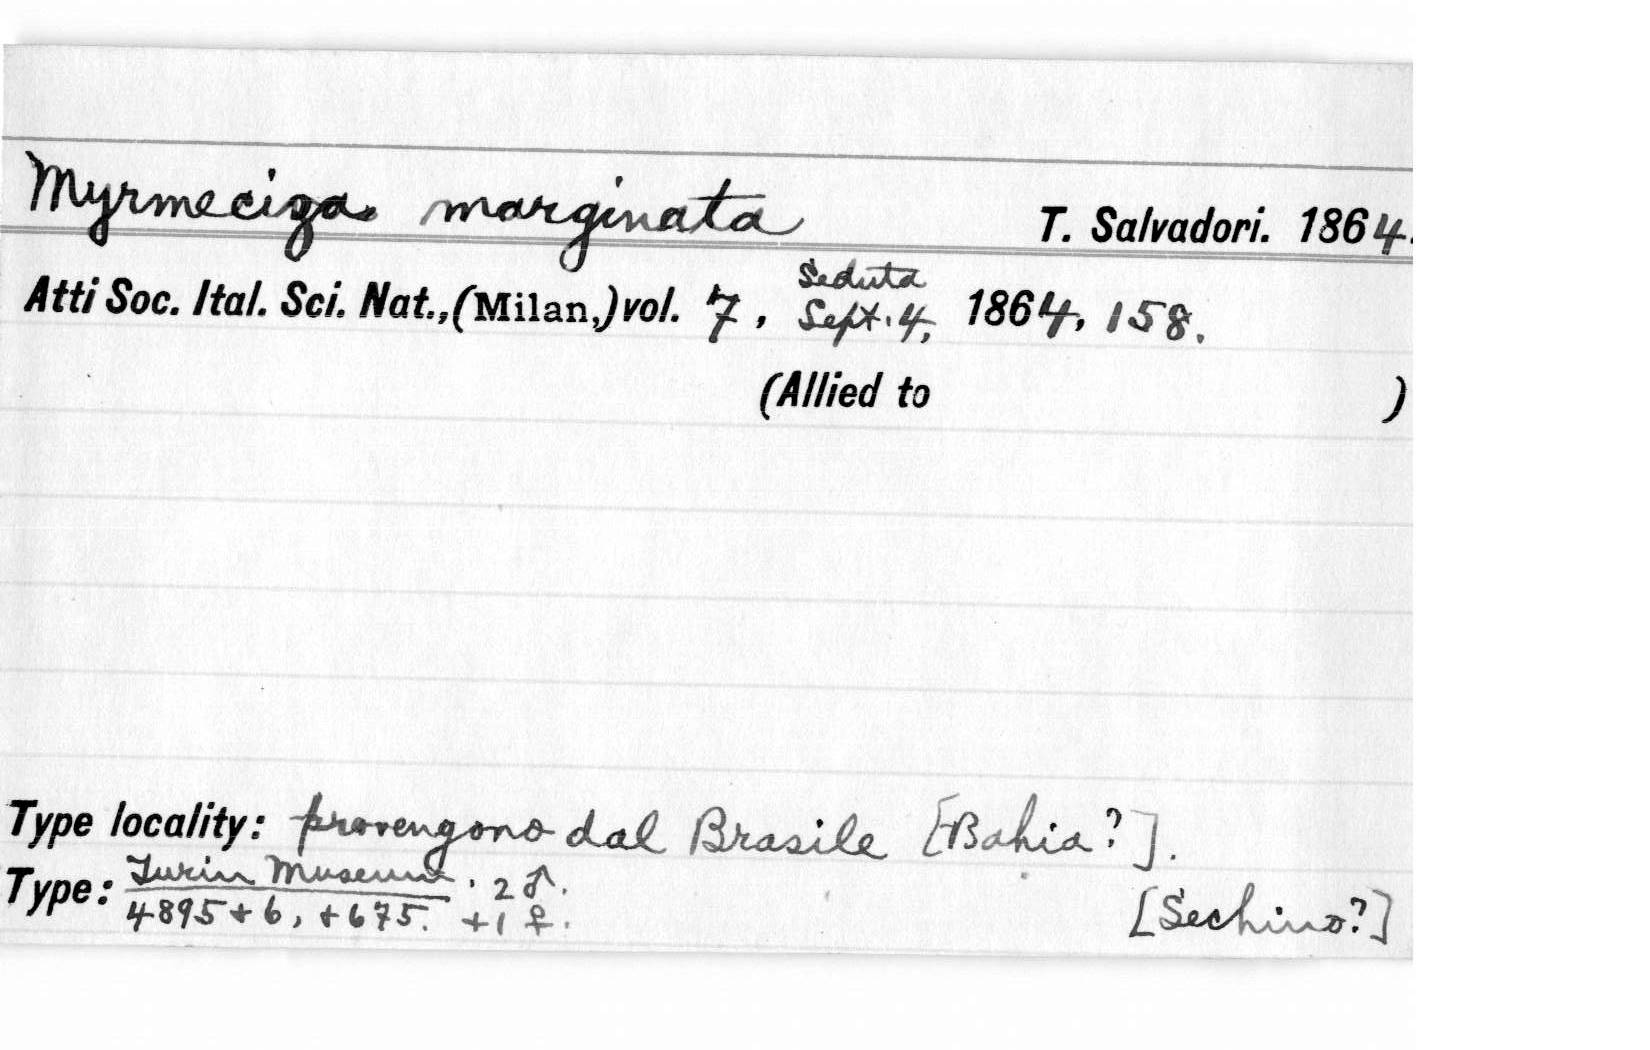 Myrmeciza marginata T. Salvadori. 1864.
Atti Soc. Ital. Sci. Nat., (Milan,) vol. 7, Seduta Sept. 4, 1864, 158.
(Allied to )
Type locality: provengono dal Brasile [Bahia?].
Type: Turin Museum. 2 ♂.
4895 + 6, + 675. + 1 ♀.
[Sechino?]